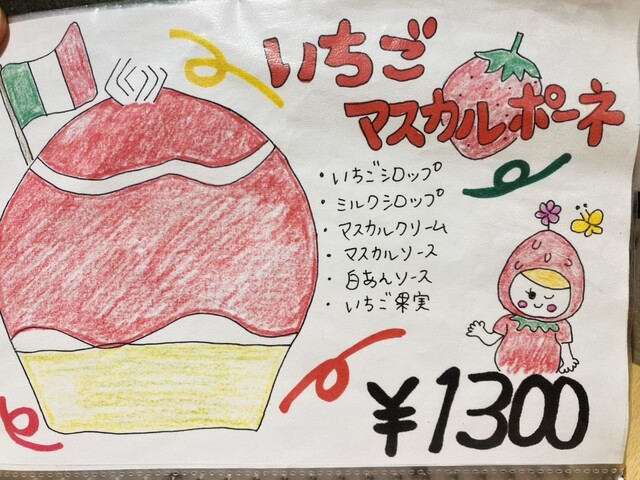 いちご
マスカルポーネ
・いちごシロップ
・ミルクシロップ
・マスカルクリーム
・マスカルソース
・白あんソース
・いちご果実
¥1300